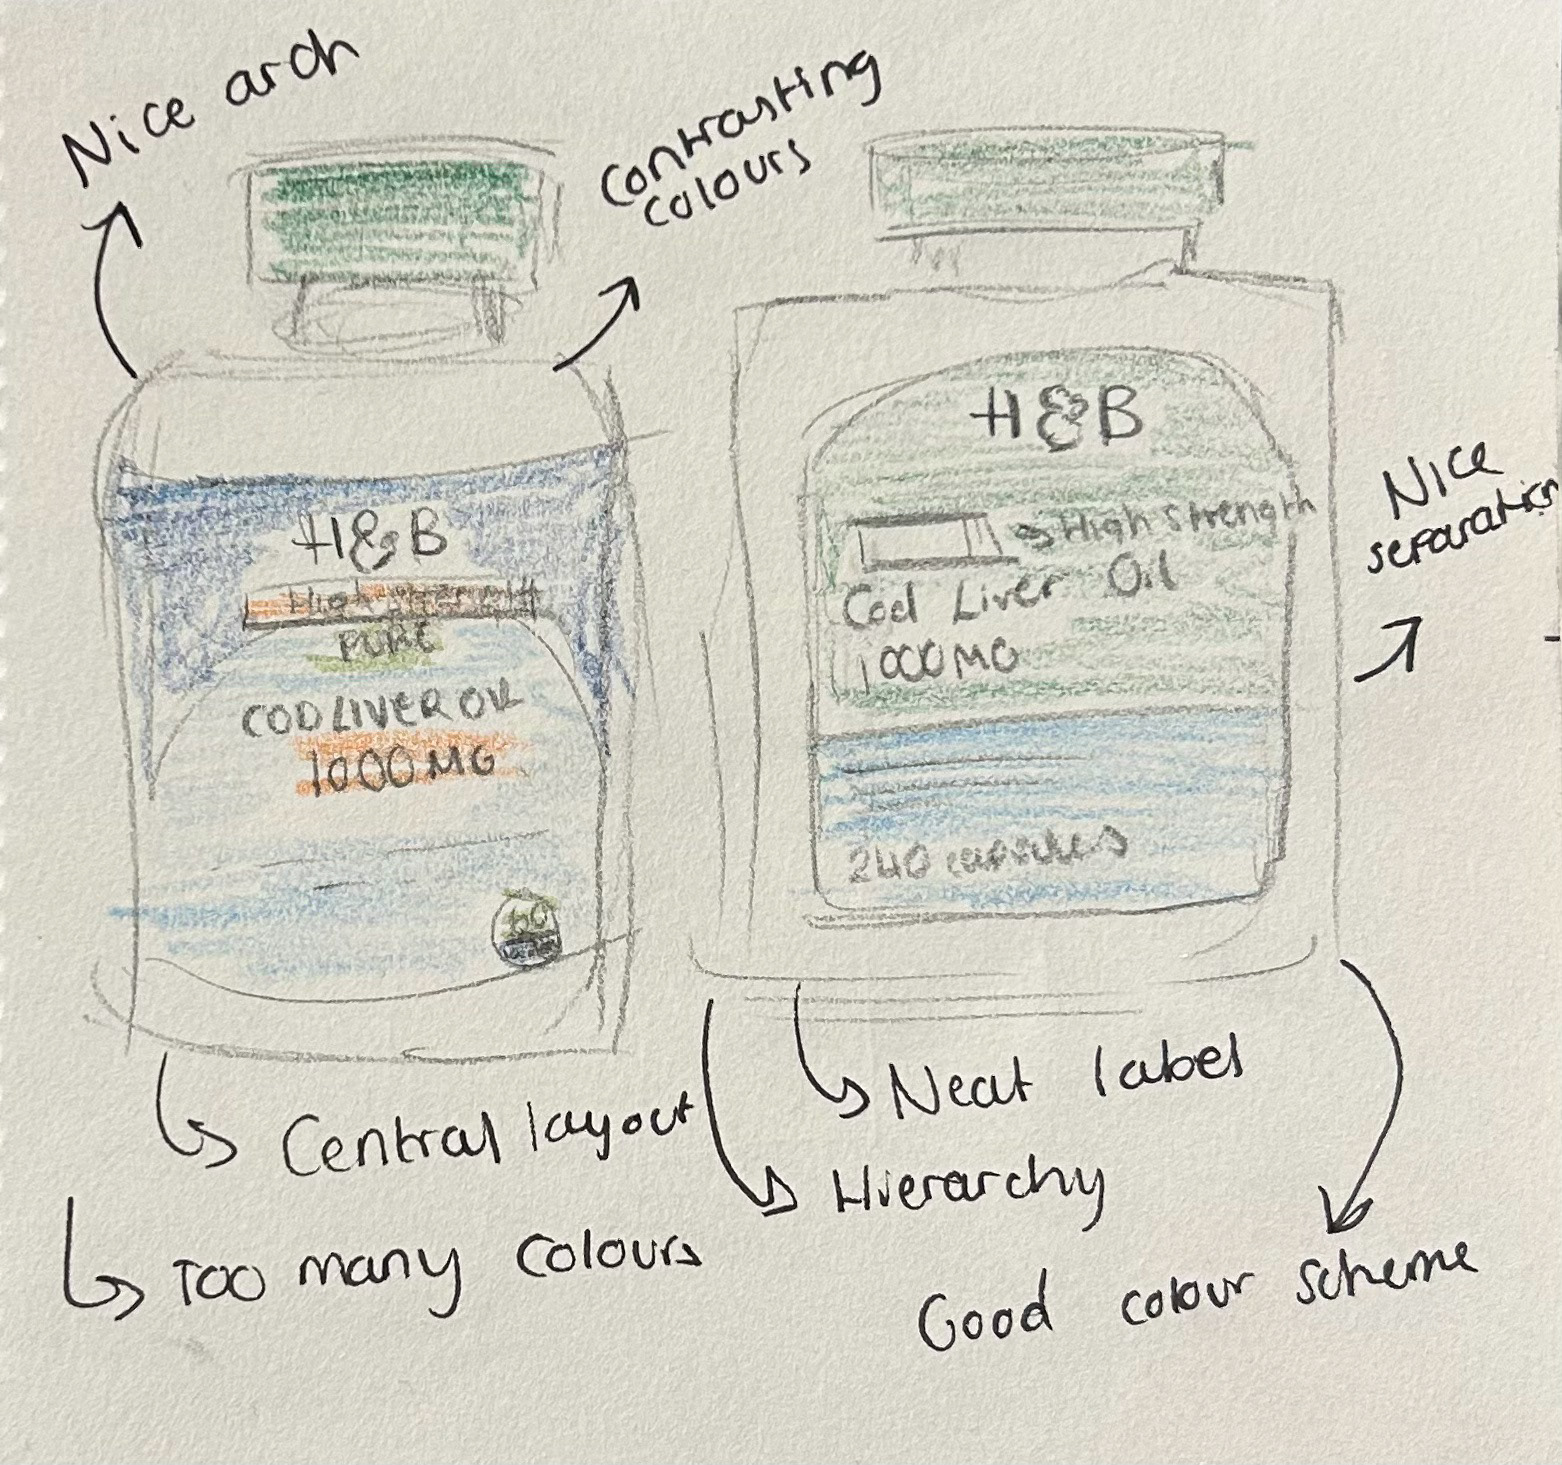 Nice arch
Contrasting
colours
H&B
High strength
PURE
COD LIVER OIL
1000MG
H&B
High Strength
Cod Liver Oil
1000MG
240 capsules
Nice
separation
Central layout
Too many colours
Neat label
Hierarchy
Good colour scheme